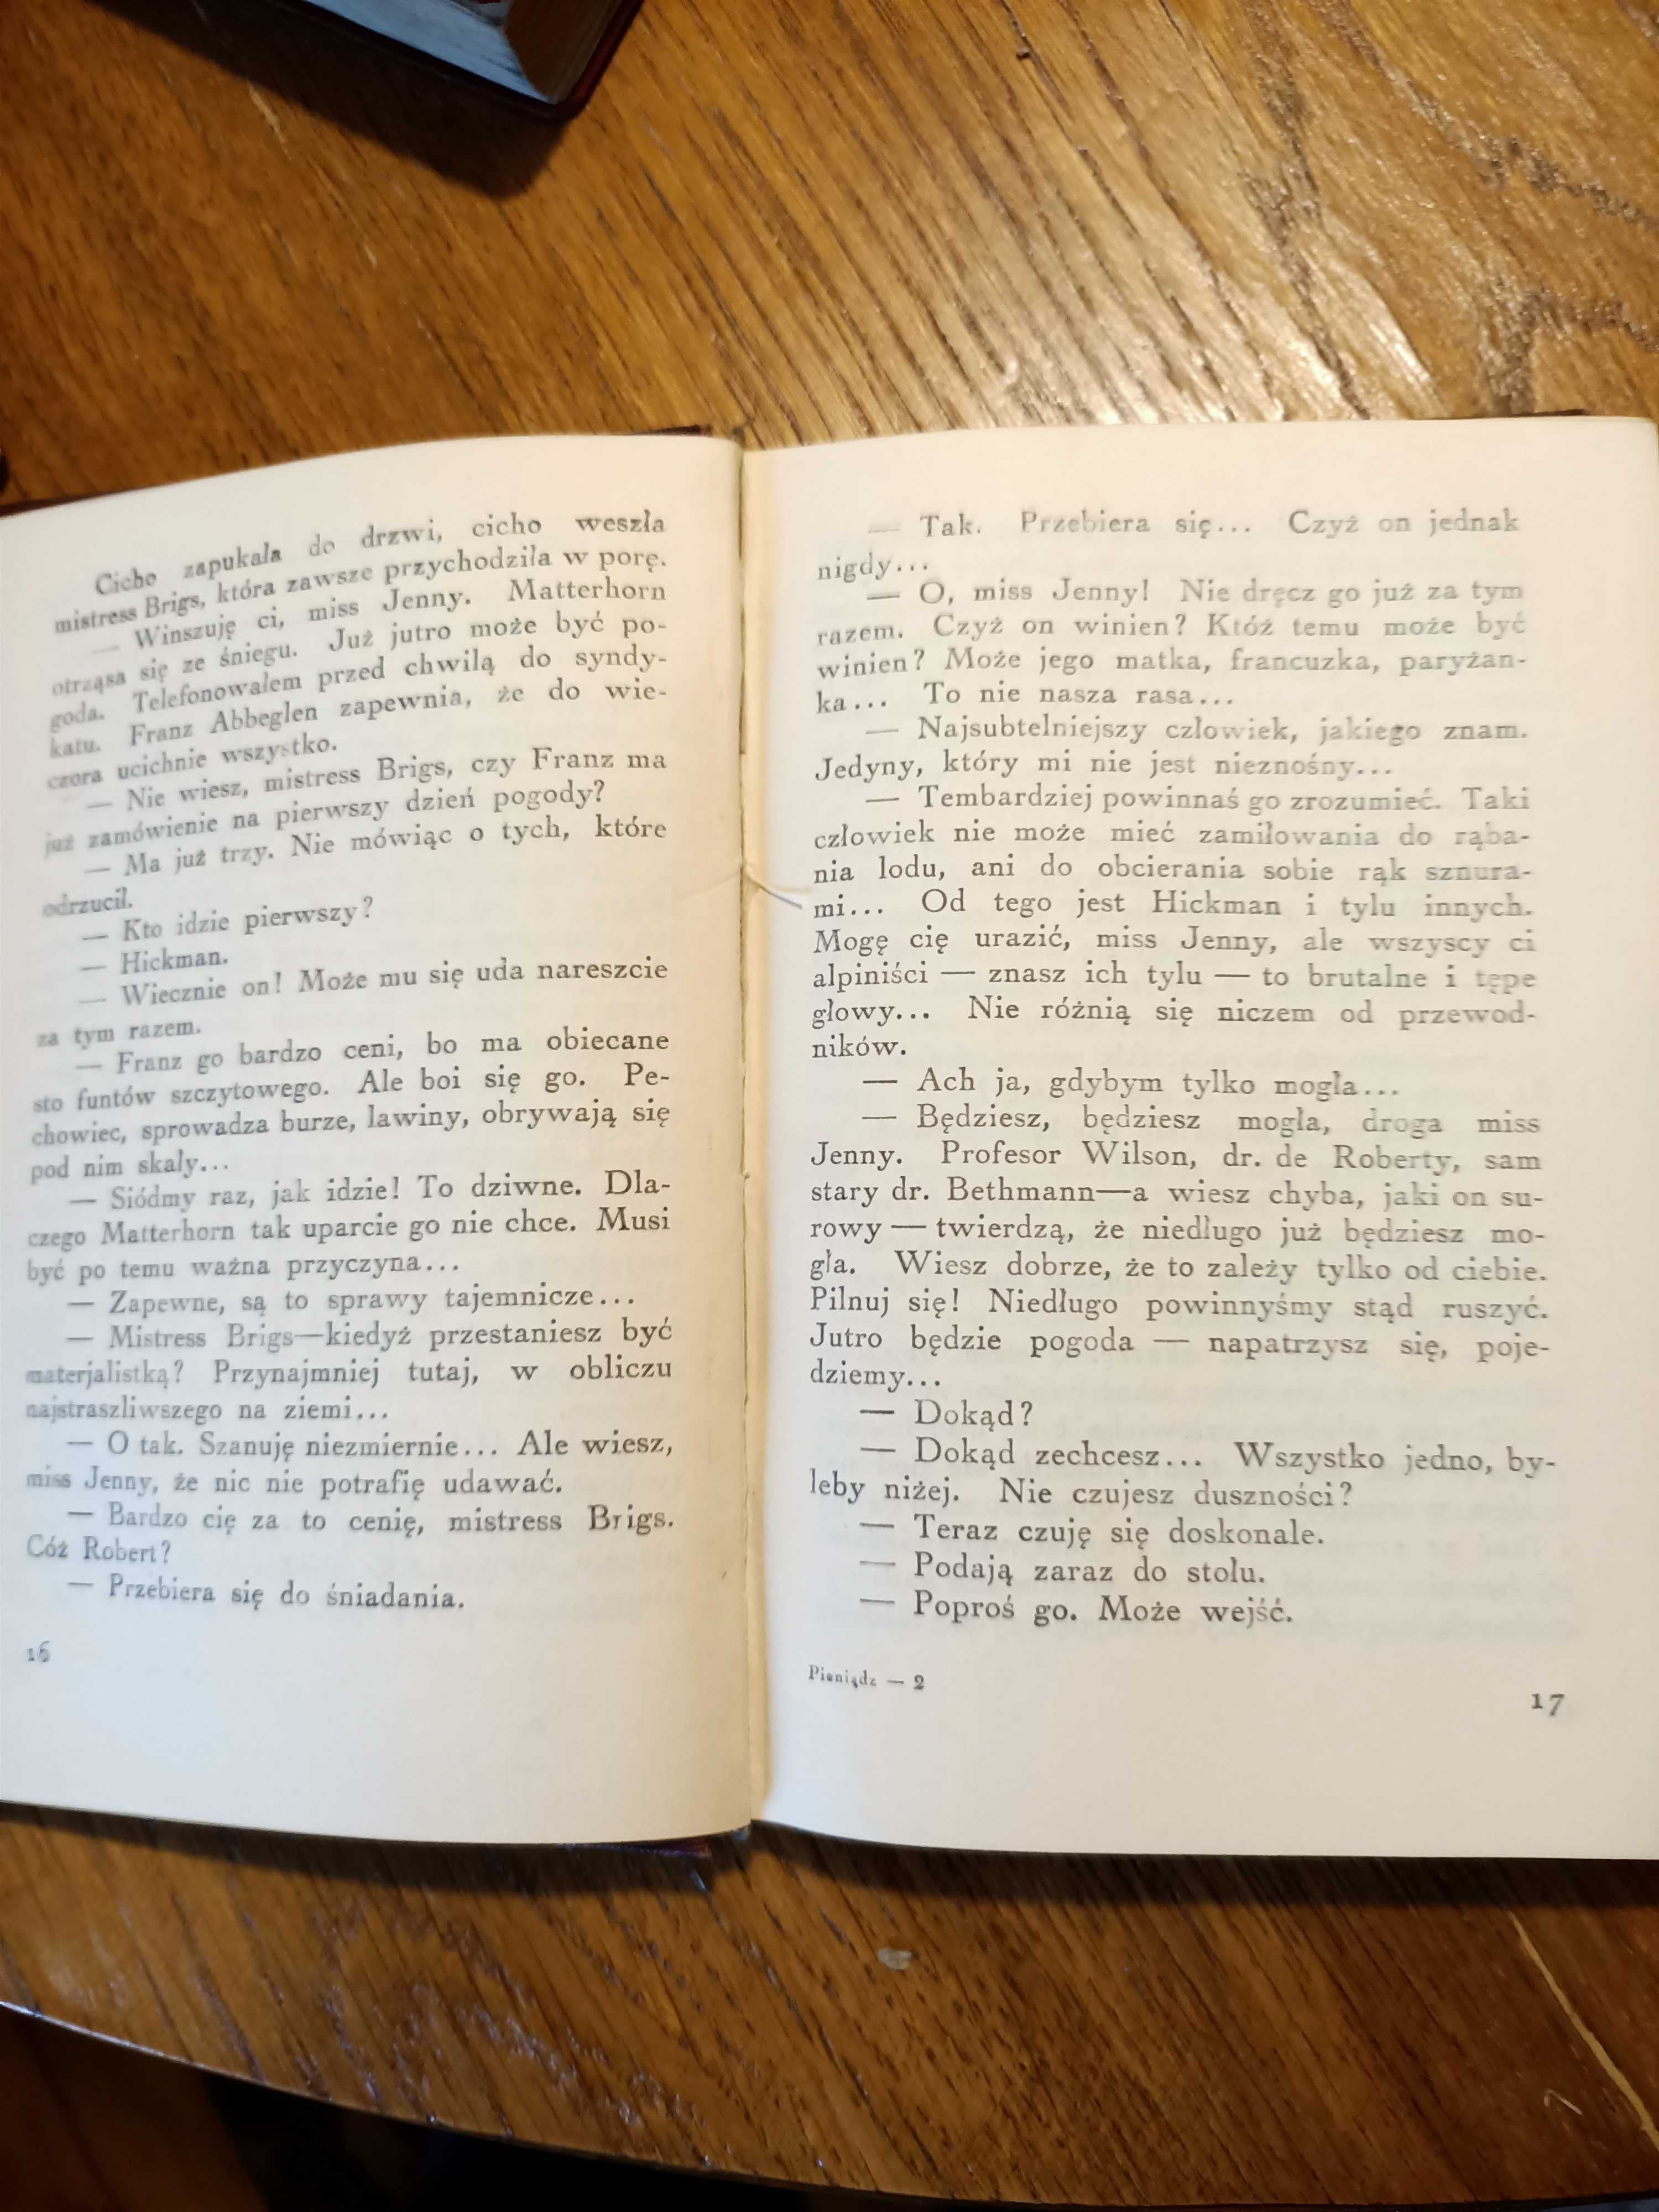 Cicho zapukała do drzwi, cicho weszła
mistress Brigs, która zawsze przychodziła w porę.
— Winszuję ci, miss Jenny. Matterhorn
otrząsa się ze śniegu. Już jutro może być po-
goda. Telefonowałem przed chwilą do syndy-
katu. Franz Abbeglen zapewnia, że do wie-
czora ucichnie wszystko.
— Nie wiesz, mistress Brigs, czy Franz ma
już zamówienie na pierwszy dzień pogody?
— Ma już trzy. Nie mówiąc o tych, które
odrzucił.
— Kto idzie pierwszy?
— Hickman.
— Wiecznie on! Może mu się uda nareszcie
za tym razem.
— Franz go bardzo ceni, bo ma obiecane
sto funtów szczytowego. Ale boi się go. Pe-
chowiec, sprowadza burze, lawiny, obrywają się
pod nim skały...
— Siódmy raz, jak idzie! To dziwne. Dla-
czego Matterhorn tak uparcie go nie chce. Musi
być po temu ważna przyczyna...
— Zapewne, są to sprawy tajemnicze...
— Mistress Brigs—kiedyż przestaniesz być
materjalistką? Przynajmniej tutaj, w obliczu
najstraszliwszego na ziemi...
— O tak. Szanuję niezmiernie... Ale wiesz,
miss Jenny, że nic nie potrafię udawać.
— Bardzo cię za to cenię, mistress Brigs.
Cóż Robert?
— Przebiera się do śniadania.
16
— Tak. Przebiera się... Czyż on jednak
nigdy...
— O, miss Jenny! Nie dręcz go już za tym
razem. Czyż on winien? Któż temu może być
winien? Może jego matka, francuzka, paryżan-
ka... To nie nasza rasa...
— Najsubtelniejszy człowiek, jakiego znam.
Jedyny, który mi nie jest nieznośny...
— Tembardziej powinnaś go zrozumieć. Taki
człowiek nie może mieć zamiłowania do rąba-
nia lodu, ani do obcierania sobie rąk sznura-
mi... Od tego jest Hickman i tylu innych.
Mogę cię urazić, miss Jenny, ale wszyscy ci
alpiniści — znasz ich tylu — to brutalne i tępe
głowy... Nie różnią się niczem od przewod-
ników.
— Ach ja, gdybym tylko mogła...
— Będziesz, będziesz mogła, droga miss
Jenny. Profesor Wilson, dr. de Roberty, sam
stary dr. Bethmann—a wiesz chyba, jaki on su-
rowy — twierdzą, że niedługo już będziesz mo-
gła. Wiesz dobrze, że to zależy tylko od ciebie.
Pilnuj się! Niedługo powinnyśmy stąd ruszyć.
Jutro będzie pogoda — napatrzysz się, poje-
dziemy...
— Dokąd?
— Dokąd zechcesz... Wszystko jedno, by-
leby niżej. Nie czujesz duszności?
— Teraz czuję się doskonale.
— Podają zaraz do stołu.
— Poproś go. Może wejść.
Pieniądz — 2
17